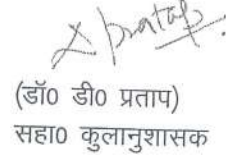 (डॉ0 डी0 प्रताप)
सहा0 कुलानुशासक